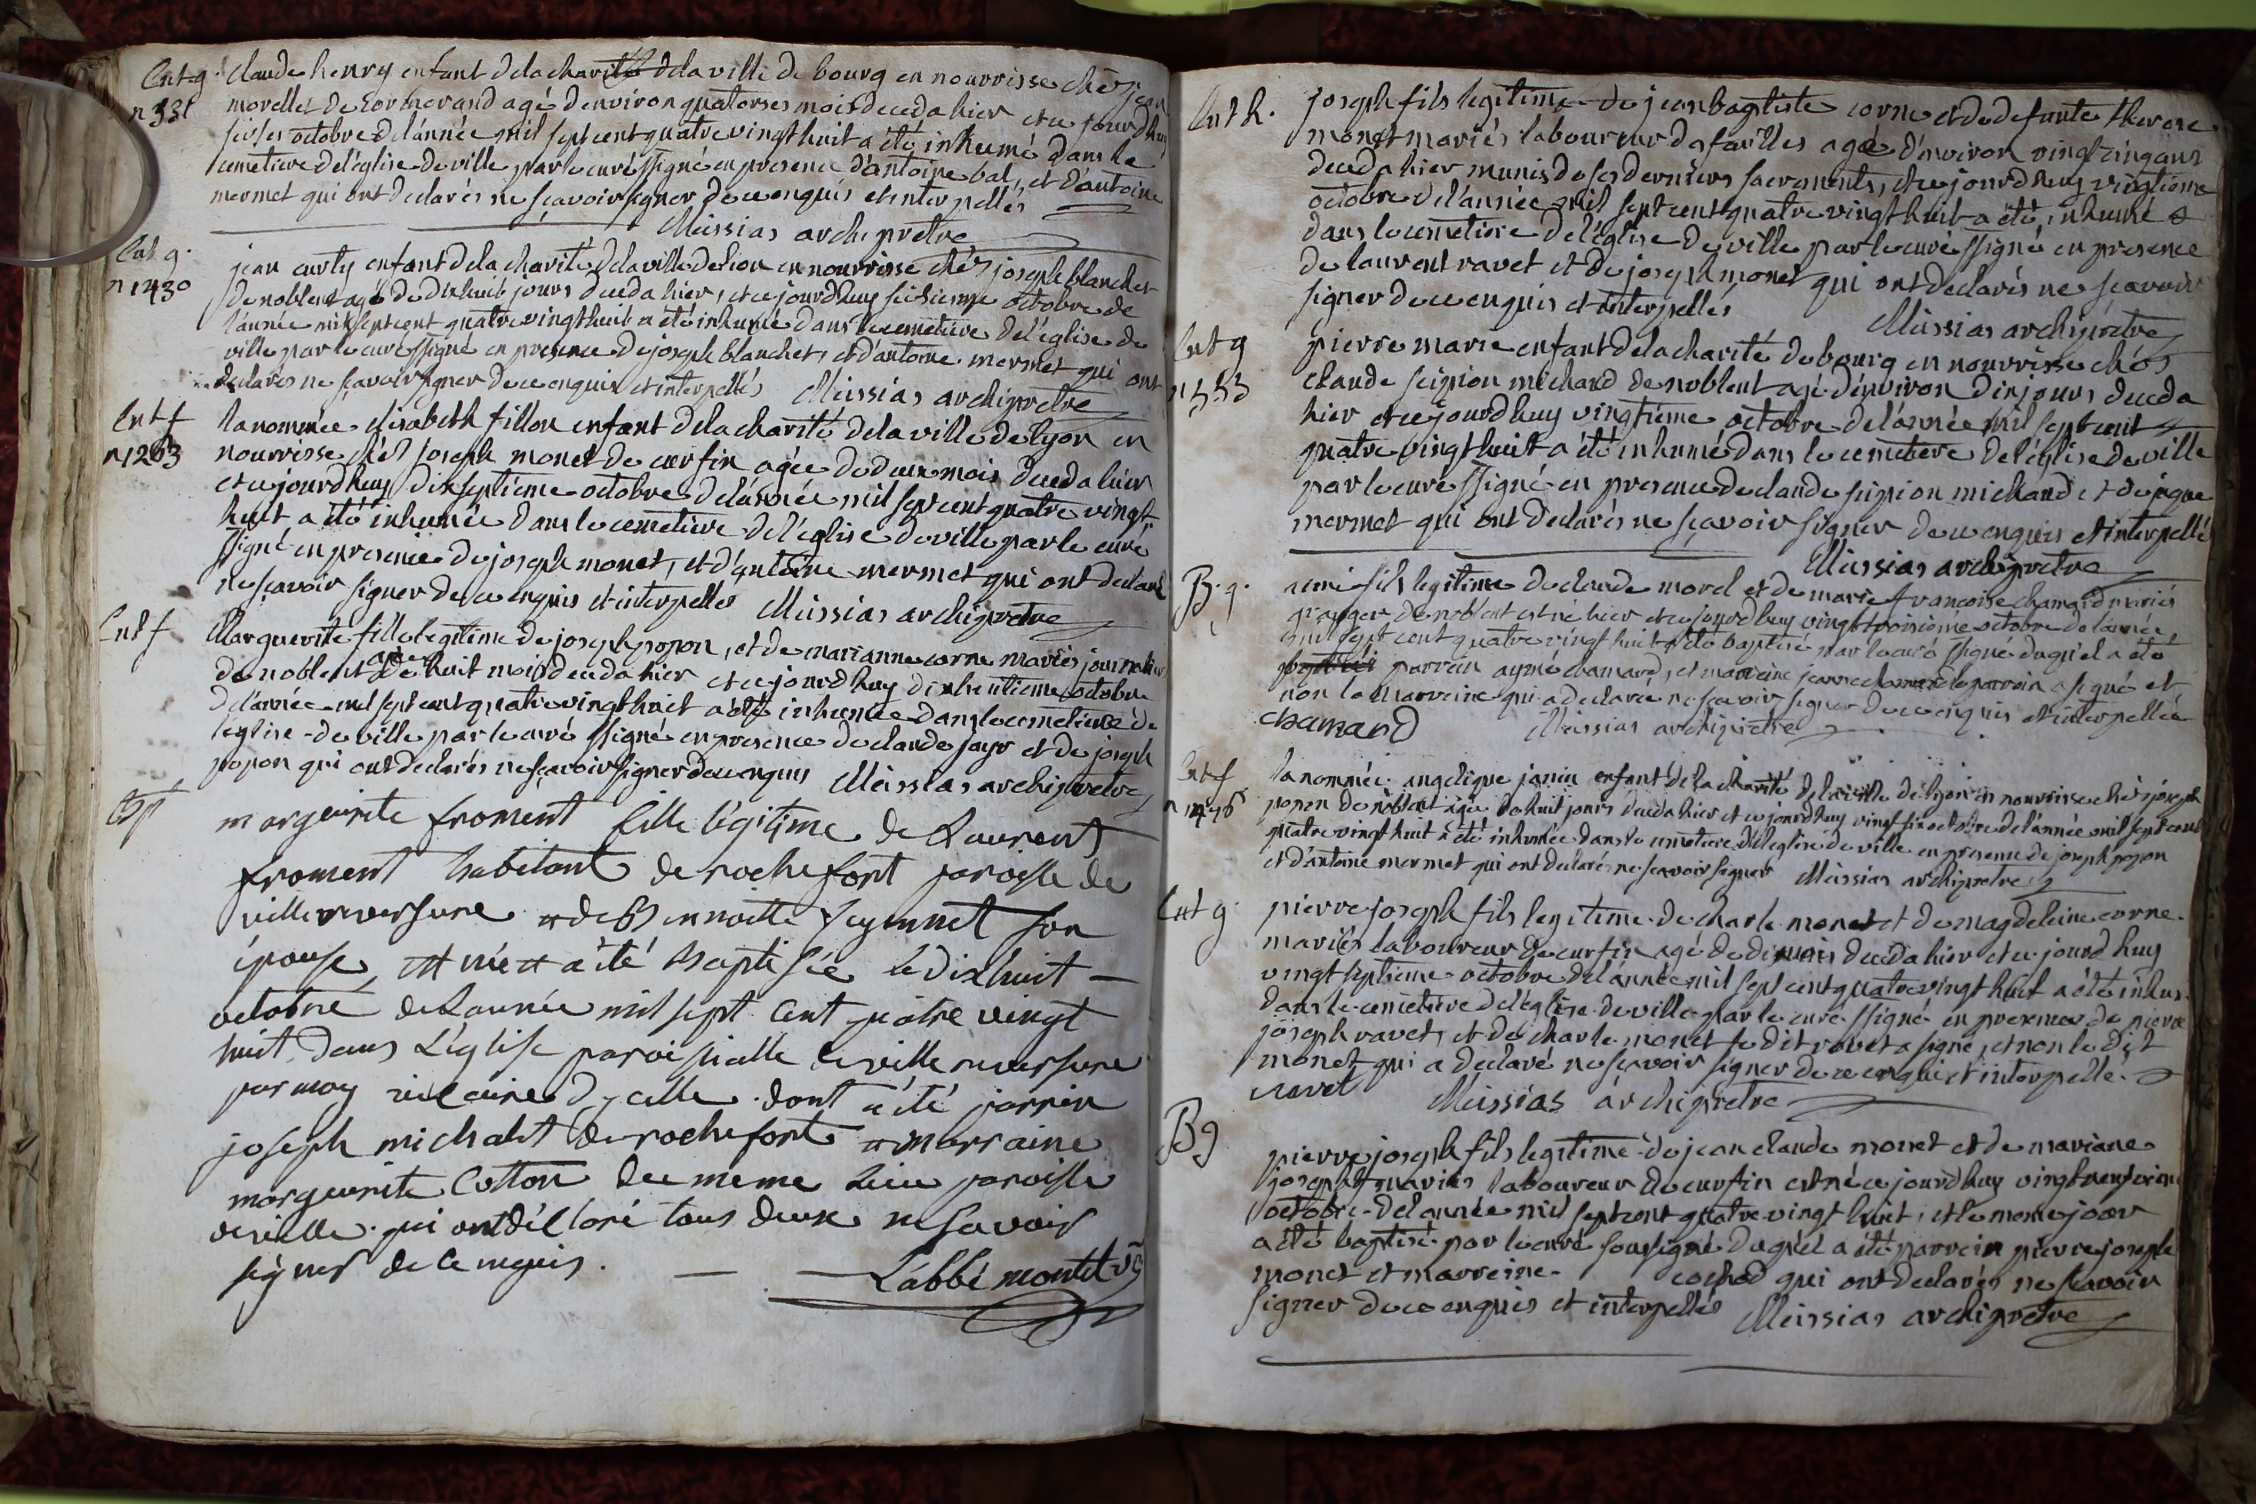 Ent g. Claude henry enfant de la charité de la ville de bourg en nourrisse chés jean
n 331 morellet de cormorand agé denviron quatorses mois deceda hier et ce jourdhuy
seises octobre de l'année mil sept cent quatre vingt huit a été inhumé dans le
cemetiere de l'église de ville par le curé ssigné en presence d'antoine bal et d'antoine
mermet qui ont declarés ne sçavoir signer de ce enquis et interpellés
Meissias archipretre
Ent g. jean curty enfant de la charité de la ville de lion en nourrisse chés joseph blanchet
n 1430 de noblent agé de dixhuit jours deceda hier, et ce jourdhuy seisieme octobre de
l'année mil sept cent quatre vingt huit a été inhumé dans le cemetiere de l'église de
ville par le curé ssigné en presence de joseph blanchet, et d'antoine mermet qui ont
declarés ne sçavoir signer de ce enquis et interpellés Meissias archipretre
Ent f la nommée elisabeth fillon enfant de la charité de la ville de lyon en
n 1263 nourrisse chés joseph monet de curfin agée de deux mois deceda hier
et ce jourdhuy dixseptieme octobre de l'année mil sept cent quatre vingt
huit a été inhumée dans le cemetiere de l'église de ville par le curé
ssigné en presence de joseph monet, et d'antoine mermet qui ont declaré
ne sçavoir signer de ce enquis et interpellés Meissias archipretre
Ent f Marguerite fille legitime de joseph popon, et de marianne corne mariés journaliers
de noblent agée de huit mois deceda hier et ce jourdhuy dixhuitieme octobre
de l'année mil sept cent quatre vingt huit a été inhumée dans le cemetiere de
l'église de ville par le curé ssigné en presence de claude jayr et de joseph
popon qui ont declarés ne sçavoir signer de ce enquis Meissias archipretre
Bf margeurite froment fille légitime de Laurent
froment habitant de rochefort paroisse de
ville reversure et de Bennoitte Seyemet son
épouse, est née et a été Baptisée le dixhuit
octobre de Lannée mil sept cent quatre vingt
huit dans L'église paroissialle de ville reversure
par moy vicaire d'ycelle dont a été parrin
joseph michalet de rochefort et marraine
marguerite Cotton du meme Lieu paroisse
de ville qui ont déclaré tous deux ne savoir
signer de ce enquis.
L'abbé montet vic
Ent h. joseph fils legitime de jean baptiste corne et de defunte therese
monet mariés laboureur de failles agé d'environ vingt cinq ans
deceda hier munis de ses derniers sacrements, et ce jourdhuy vingtieme
octobre de l'année mil sept cent quatre vingt huit a été inhumé
dans le cemetiere de l'église de ville par le curé ssigné en presence
de laurent ravet et de joseph monet qui ont declarés ne sçavoir
signer de ce enquis et interpellés Meissias archipretre
Ent g pierre marie enfant de la charité de bourg en nourrisse chés
n 333 claude scipion michaud de noblent agé d'environ dix jours deceda
hier et ce jourdhuy vingtieme octobre de l'année mil sept cent
quatre vingt huit a été inhumé dans le cemetiere de l'église de ville
par le curé ssigné en presence de claude sipion michaud et de jaque
mermet qui ont declarés ne sçavoir signer de ce enquis et interpellés
Meissias archipretre
B. g. aimé fils legitime de claude morel et de marie francoise chamard mariés
granger de noblent est né hier et ce jourdhuy vingt troisieme octobre de l'année
mil sept cent quatre vingt huit a été baptisé par le curé ssigné duquel a été
parrein aymé chamard, et marreine jeanne chamard le parrein a signé et
non la marreine qui a declarée ne sçavoir signer de ce enquis et interpellée
chamard Meissias archipretre
Ent f la nommée angelique janin enfant de la charité de la ville de lyon en nourrisse chés joseph
popon de noblent agée de huit jours deceda hier et ce jourdhuy vingt six octobre de l'année mil sept cent
quatre vingt huit a été inhumée dans le cemetiere de l'église de ville en presence de joseph popon
et d'antoine mermet qui ont declarés ne sçavoir signer Meissias archipretre
Ent g. pierre joseph fils legitime de charle monet et de magdeleine corne
mariés laboureur de curfin agé de dix mois deceda hier et ce jourd huy
vingt septieme octobre de l'année mil sept cent quatre vingt huit a été inhu.
dans le cemetiere de l'église de ville par le curé ssigné en presence de pierre
joseph ravet, et de charle monet le dit ravet a signé, et non le dit
monet qui a declaré ne sçavoir signer de ce enquis et interpellé.
ravet Meissias archipretre
B g pierre joseph fils legitime de jean claude monet et de mariane
joseph mariés laboureur de curfin est né ce jourdhuy vingt neuvieme
octobre de l'année mil sept cent quatre vingt huit, et le meme jour
a été baptisé par le curé soussigné duquel a été parrein pierre joseph
monet et marreine cochod qui ont declarés ne sçavoir
signer de ce enquis et interpellés Meissias archipretre